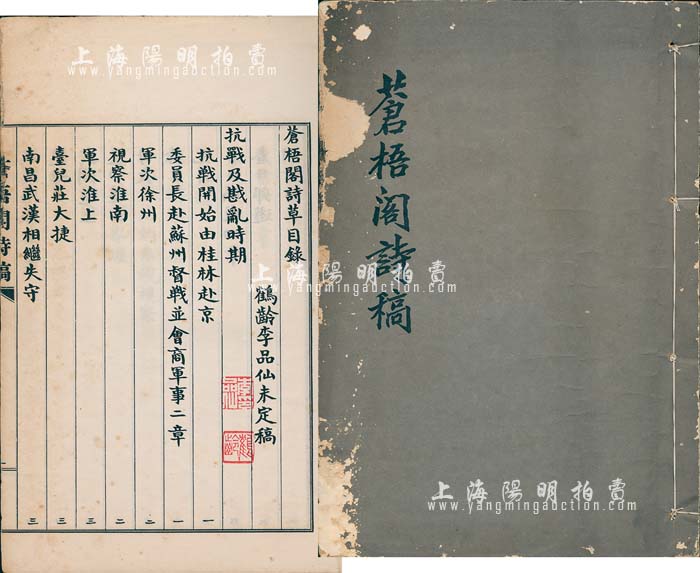 蒼梧閣詩稿
蒼梧閣詩草目錄
鶴齡李品仙未定稿
抗戰及戡亂時期
抗戰開始由桂林赴京 一
委員長赴蘇州督戰並會商軍事二章 一
軍次徐州 二
視察淮南 二
軍次淮上 三
臺兒莊大捷 三
南昌武漢相繼失守 三
蒼梧閣詩稿
上海陽明拍賣
www.yangmingauction.com
上海陽明拍賣
www.yangmingauction.com
上海陽明拍賣
www.yangmingauction.com
上海陽明拍賣
www.yangmingauction.com